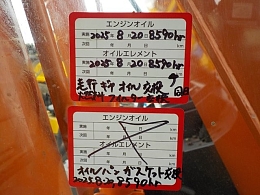 エンジンオイル
実施 2025年 8月 20日 8590hr
次回 年 月 日 km
オイルエレメント
実施 2025年 8月 20日 8590hr
次回 年 月 日 km
走行ギヤオイル交換
エンジンオイル
年 月 日 km
次回 年 月 日 km
オイルエレメント
年 月 日 km
年 月 日 km
オイルパンガスケット交換
2025.8.20 8590hr